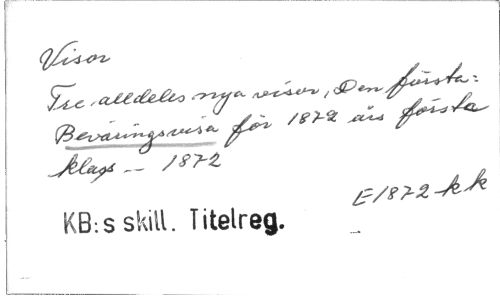 Visor
Tre alldeles nya visor, Den första:
Beväringsvisa för 1872 års första
klass -- 1872
E1872 kk
KB:s skill. Titelreg.